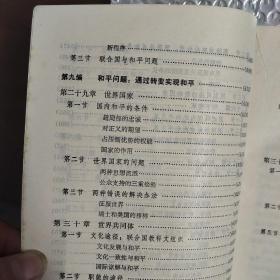 新程序
第三节 联合国与和平问题
第九编 和平问题：通过转变实现和平
第二十九章 世界国家
第一节 国内和平的条件
超局部的忠诚
对正义的期望
占压倒优势的权能
国家的作用
第二节 世界国家的问题
两种思想流派
公众支持的三重检验
第三节 两种错误的解决办法
征服世界
瑞士和美国的榜样
第三十章 世界共同体
第一节 文化途径：联合国教科文组织
文化发展与和平
文化一致性与和平
国际谅解与和平
第二节 职能的途径